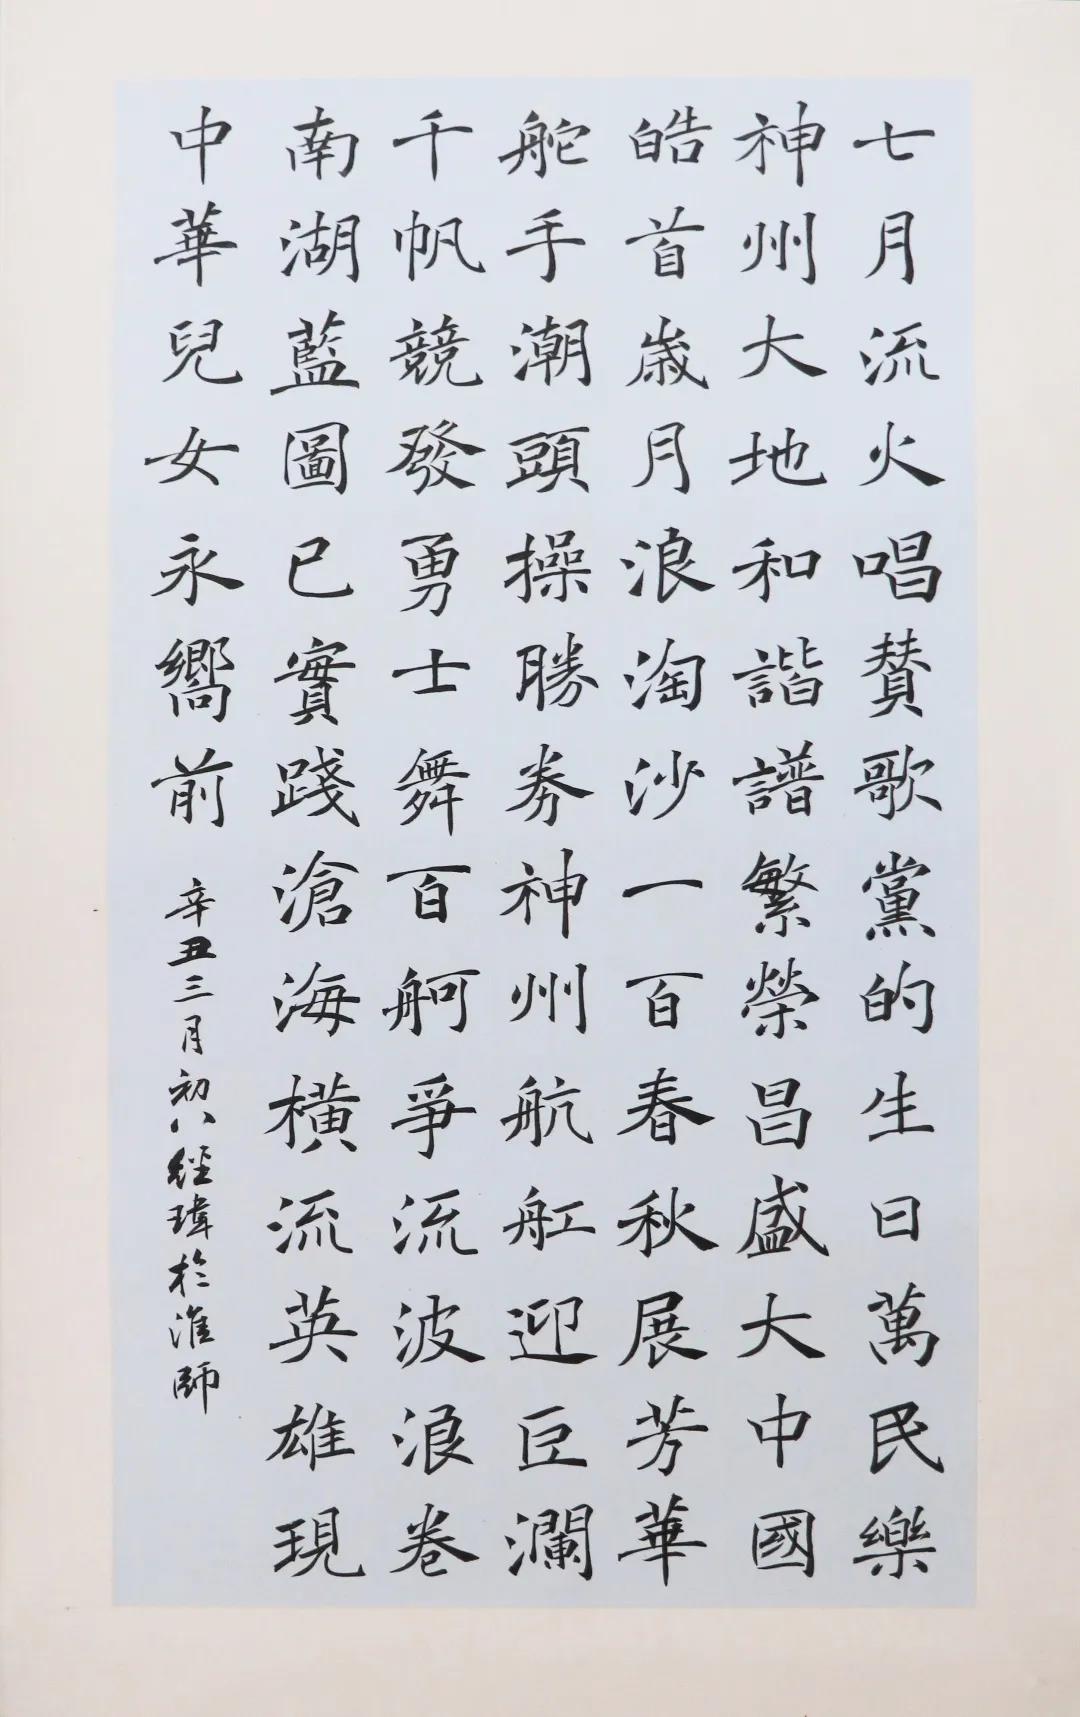 七月流火唱赞歌黨的生日萬民樂
神州大地和諧譜繁榮昌盛大中國
皓首歲月浪淘沙一百春秋展芳華
舵手潮頭操勝券神州航舡迎巨瀾
千帆競發勇士舞百舸爭流波浪卷
南湖藍圖已實踐滄海橫流英雄現
中華兒女永嚮前 辛丑三月初八經瑋於淮師